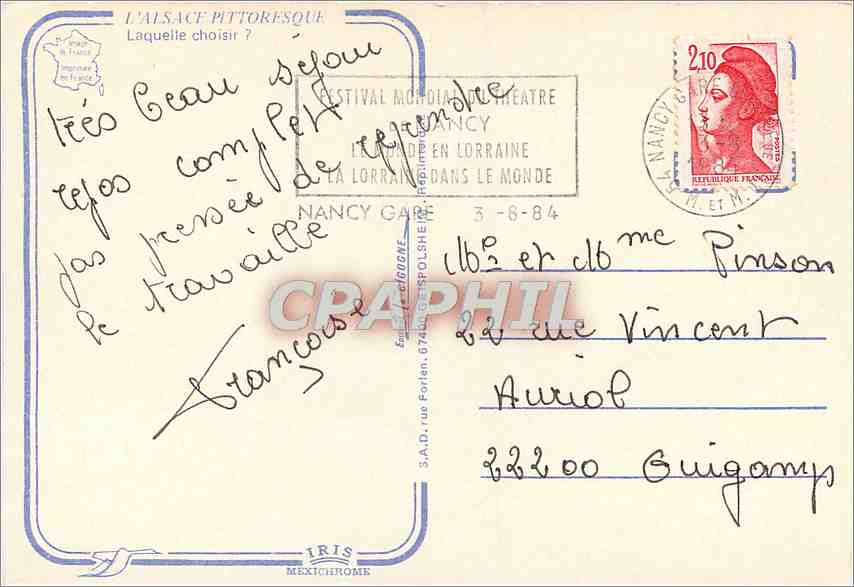 L'ALSACE PITTORESQUE
Laquelle choisir ?
Image de France
Imprimée en France
très beau séjour
repos complet
pas pressée de reprendre
le travaille
Françoise
FESTIVAL MONDIAL DU THÉATRE
DE NANCY
LE MONDE EN LORRAINE
LA LORRAINE DANS LE MONDE
NANCY GARE 3 -8-84
2,10
POSTES
RÉPUBLIQUE FRANÇAISE
54 NANCY GARE
M. ET M.
Mr et Mme Pinson
22 rue Vincent
Auriol
22200 Guigamp
CPARAMA
S.A.D. rue Forlen. 67400 GEISPOLSHEIM.
CIGOGNE
CPAPHIL
IRIS
MEXICHROME